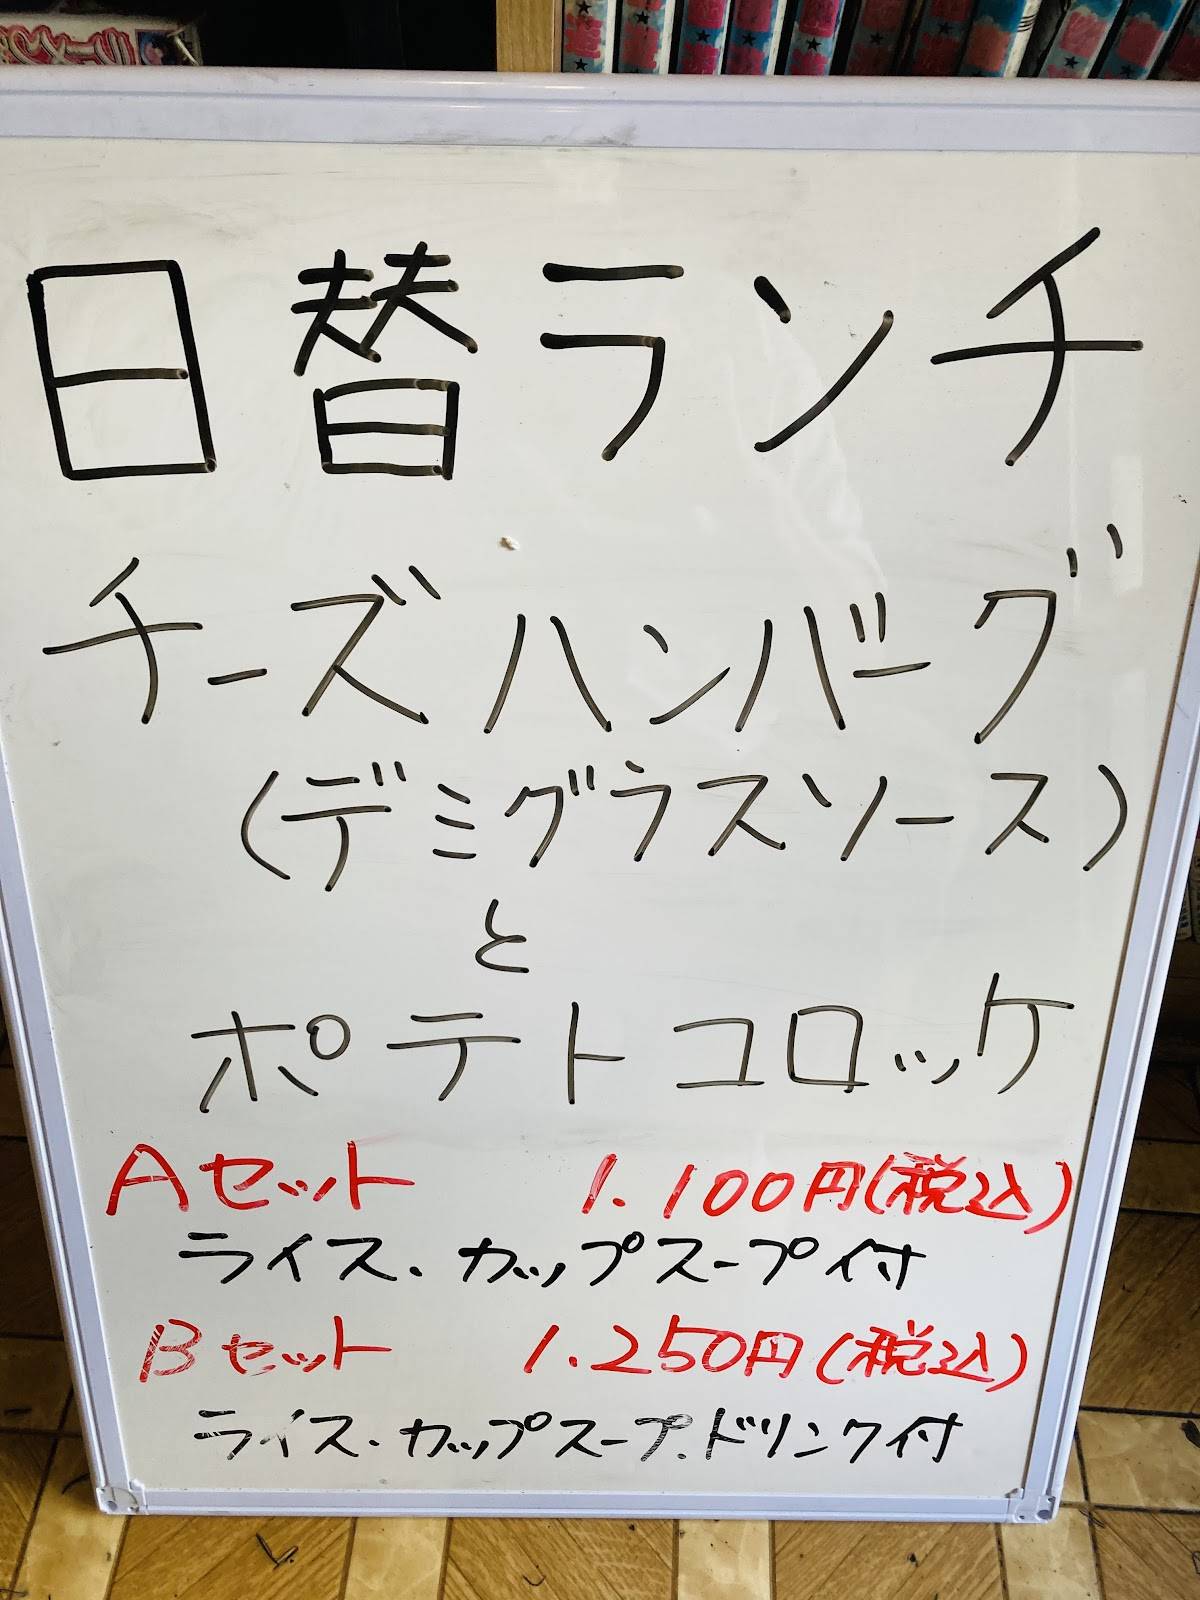 日替ランチ
チーズハンバーグ
(デミグラスソース)
と
ポテトコロッケ
Aセット 1.100円(税込)
ライス.カップスープ付
Bセット 1.250円(税込)
ライス.カップスープ.ドリンク付